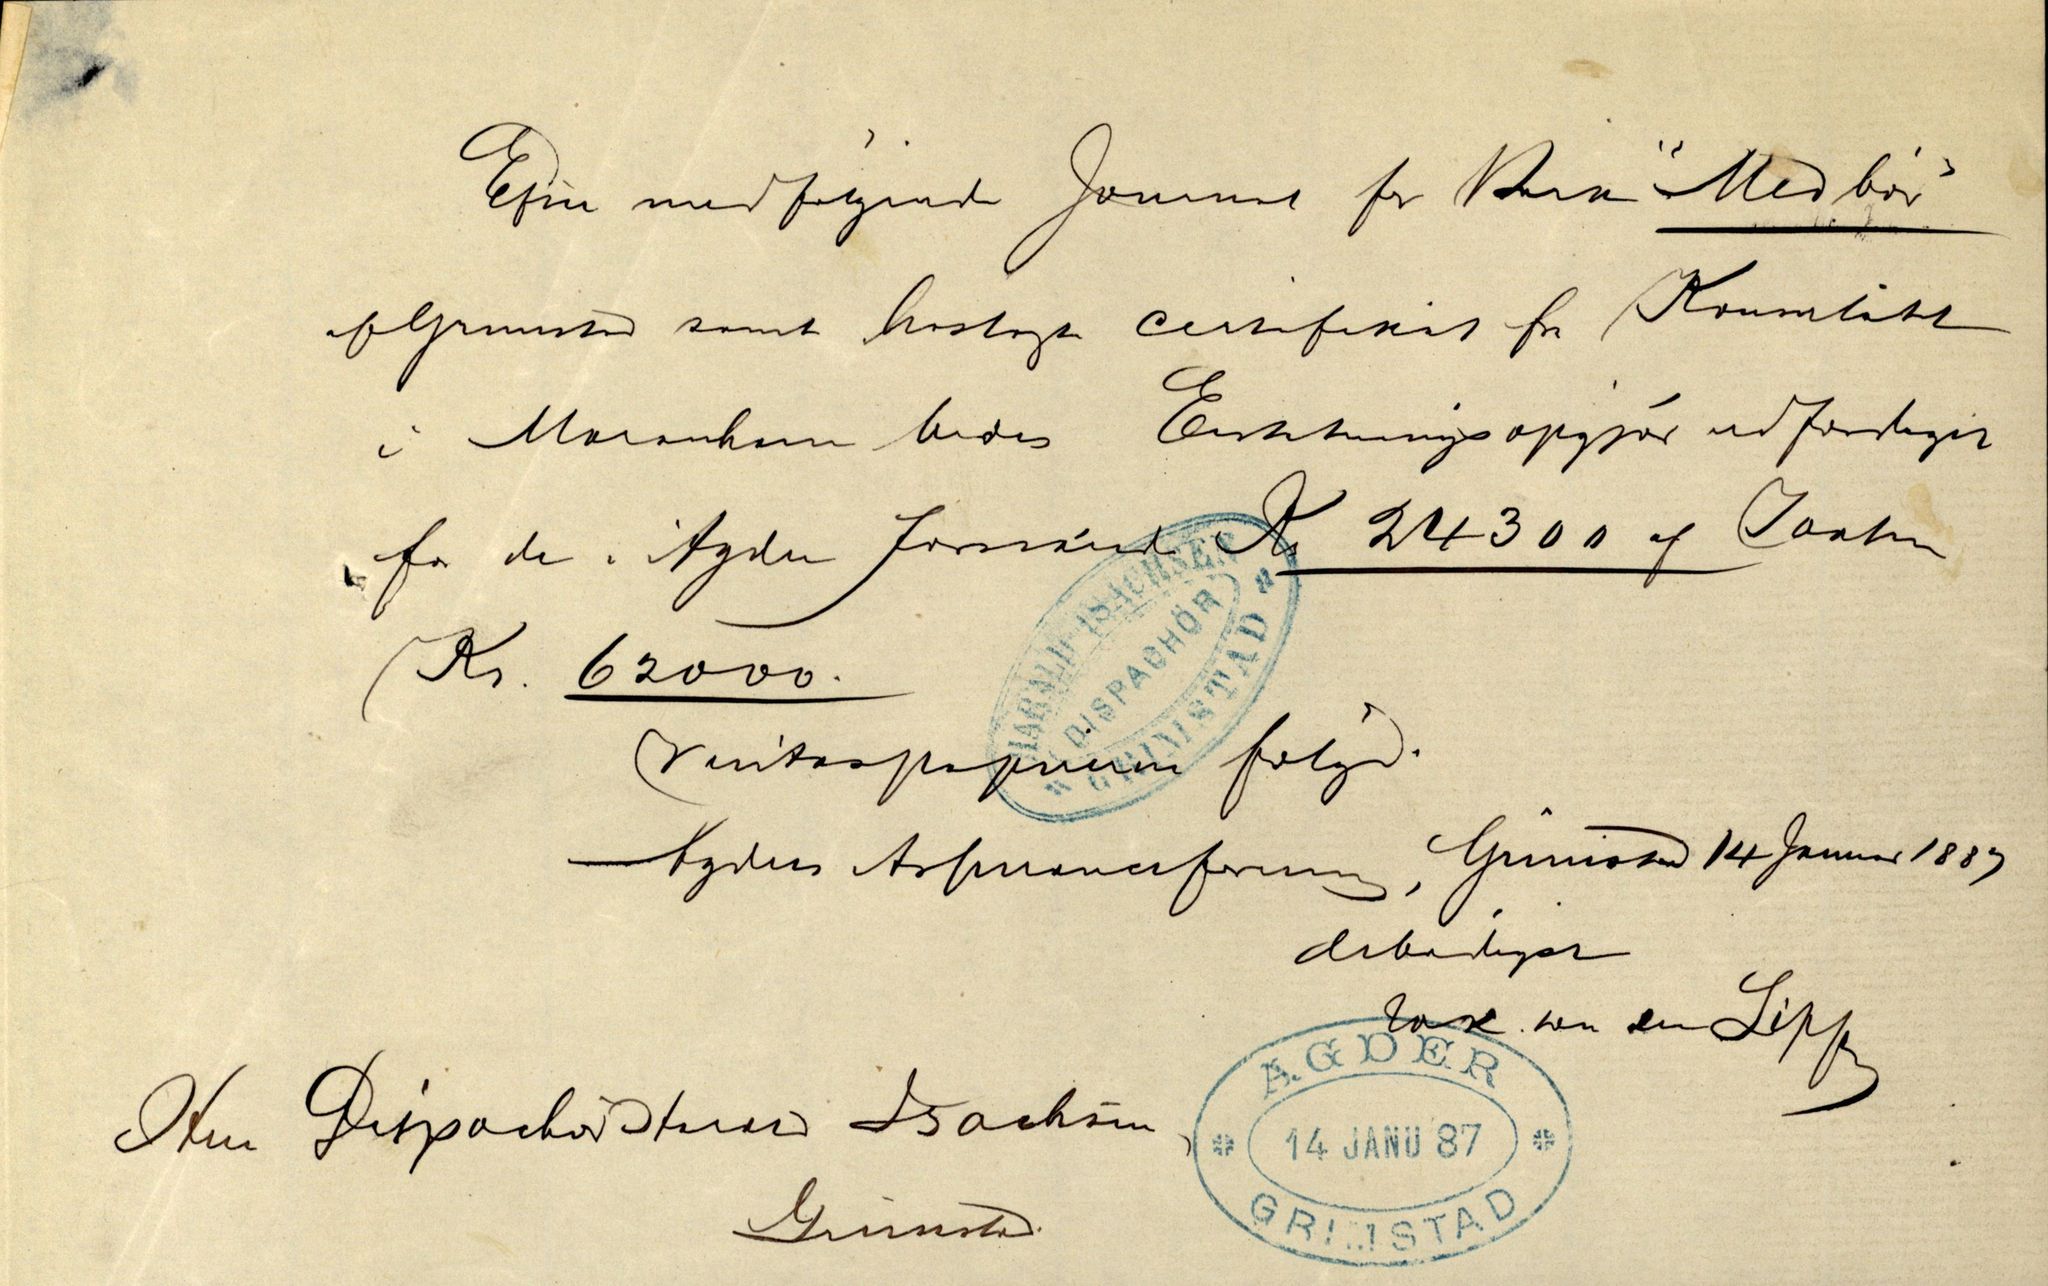 Efter medfølgende Journal for Bark "Medbör"
af Grimstad samt hoslagte certifikat fra Konsulatet
i Maranham bedes Erstatningsopgjør udfærdiget
for de i Agder forsikrede Kr 24300 af Taxten
Kr. 62000.
Veritaspapirerne følger.
Agders Assuranceforening, Grimstad 14 Januar 1887
ærbødigst
von der Lippe
Herr Dispachør Harald Isachsen,
Grimstad.
HARALD ISACHSEN
DISPACHÖR
GRIMSTAD
AGDER
14 JANU 87
GRIMSTAD